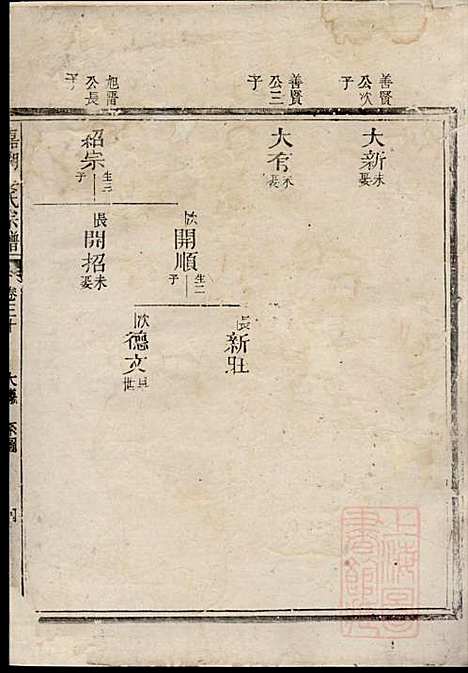 善賢公次子
善賢公三子
旭晉公長子
大新 未娶
大有 未娶
紹宗 生三子
次 開順 生二子
長 開招 未娶
長 新壯
次 德文 早世
氏宗譜
卷三十
系圖
四